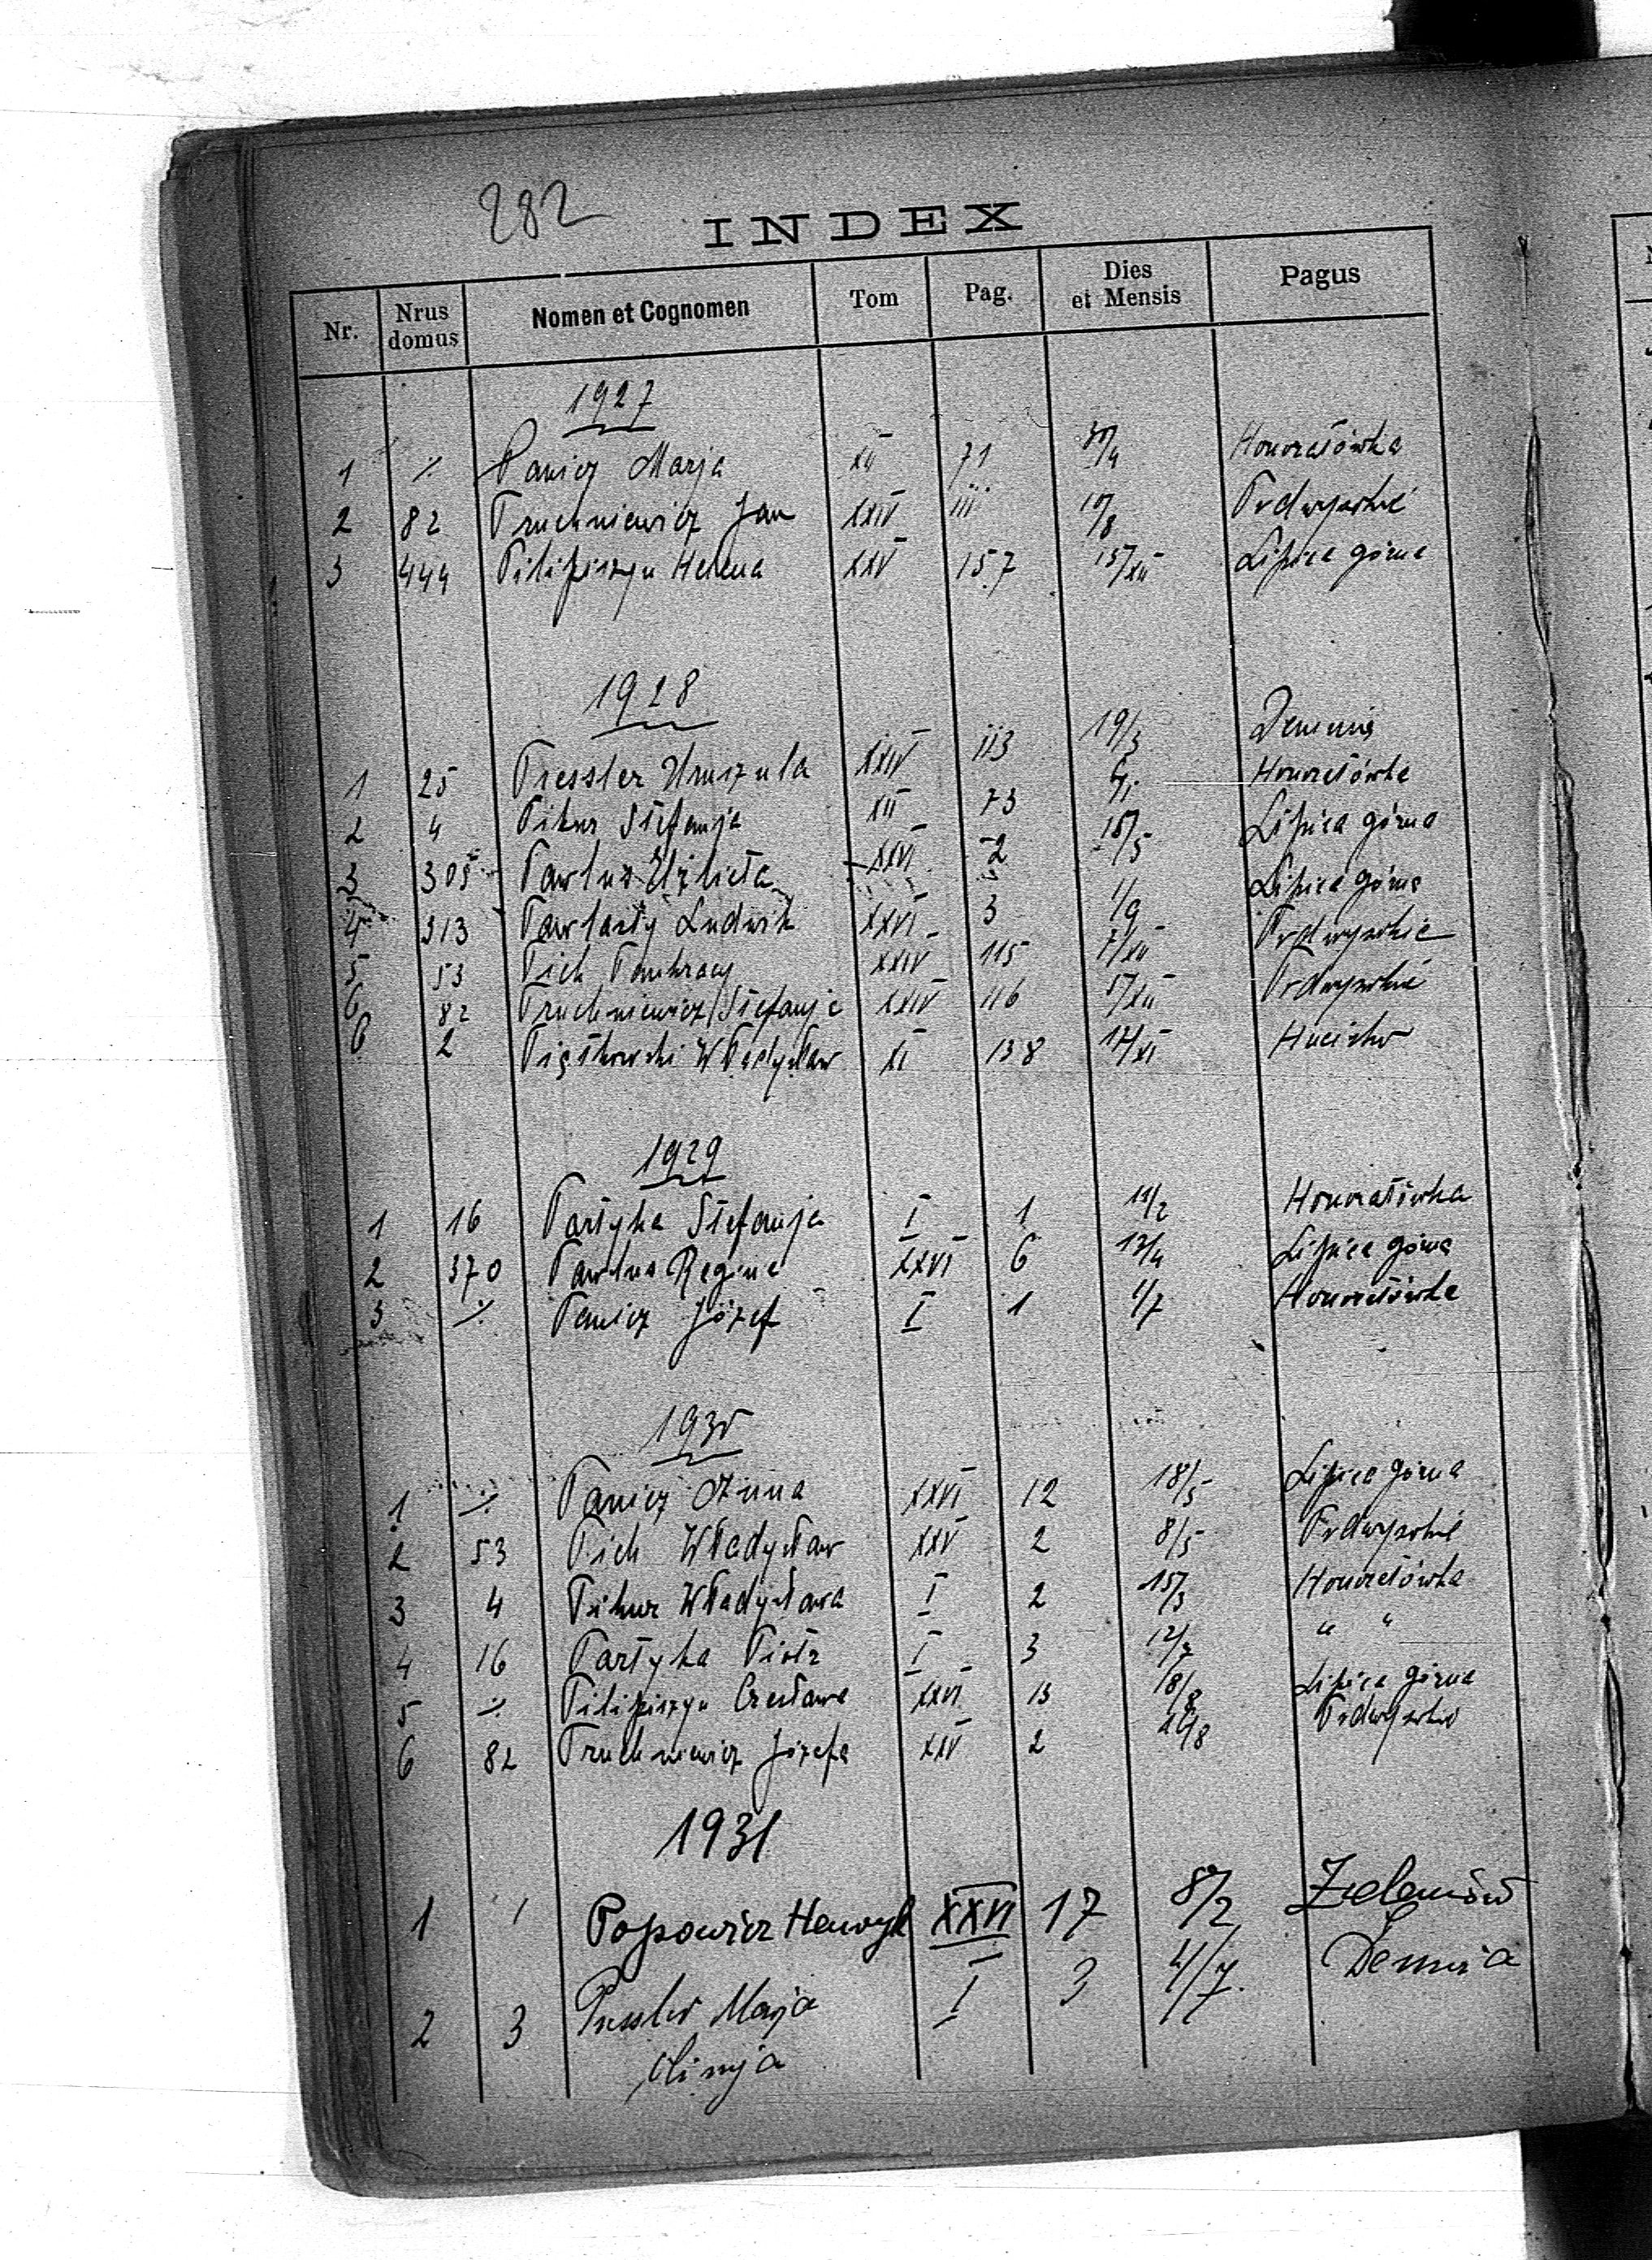 282
INDEX
Nr. Nrus domus Nomen et Cognomen Tom Pag. Dies et Mensis Pagus
1927
1 ./. Panicz Marja XII 71 30/4 Honoratówka
2 82 Pruchniewicz Jan XXIV 111 10/8 Podwysokie
3 444 Pilipiszyn Helena XXV 157 15/XII Lipica górna
1928
1 25 Pressler Urszula XXIV 113 19/3 Demnia
2 4 Pikur Stefanja XII 73 Honoratówka
3 305 Pawlus Elżbieta XXVI 2 15/5 Lipica górna
4 313 Ludwik XXVI 3 1/9 Lipica górna
5 53 Pich Pankracy XXIV 115 7/XII Podwysokie
6 82 Pruchniewicz Stefanja XXIV 116 5/XII Podwysokie
6 2 Piątkowski Władysław XI 138 17/XI Hucisko
1929
1 16 Partyka Stefanja I 1 11/2 Honoratówka
2 370 Pawlus Regina XXVI 6 13/4 Lipica górna
3 ./. Panicz Józef I 1 1/7 Honoratówka
1930
1 ./. Panicz Anna XXVI 12 18/5 Lipica górna
2 53 Pich Władysław XXV 2 8/5 Podwysokie
3 4 Pikur Władysława I 2 15/3 Honoratówka
4 16 Partyka Piotr I 3 12/7 " "
5 ./. Pilipiszyn Czesława XXVI 13 18/8 Lipica górna
6 82 Pruchniewicz Józefa XXV 2 26/8 Podwysokie
1931
1 1 Popowicz Henryk XXVI 17 8/2 Zelenów
2 3 Pressler Marja I 3 4/7. Demnia